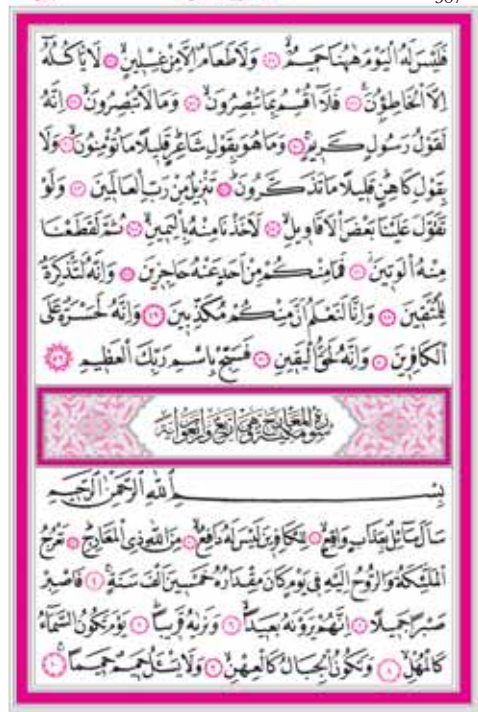 567
فَلَيْسَ لَهُ الْيَوْمَ هٰهُنَا حَمِيمٌ ﴿٣٥﴾ وَلَا طَعَامٌ اِلَّا مِنْ غِسْلِينٍ ﴿٣٦﴾ لَا يَأْكُلُهُٓ
اِلَّا الْخَاطِؤُنَ ﴿٣٧﴾ فَلَٓا اُقْسِمُ بِمَا تُبْصِرُونَ ﴿٣٨﴾ وَمَا لَا تُبْصِرُونَ ﴿٣٩﴾ اِنَّهُ
لَقَوْلُ رَسُولٍ كَرِيمٍ ﴿٤٠﴾ وَمَا هُوَ بِقَوْلِ شَاعِرٍ قَلِيلًا مَا تُؤْمِنُونَ ﴿٤١﴾ وَلَا
بِقَوْلِ كَاهِنٍ قَلِيلًا مَا تَذَكَّرُونَ ﴿٤٢﴾ تَنْزِيلٌ مِنْ رَبِّ الْعَالَمِينَ ﴿٤٣﴾ وَلَوْ
تَقَوَّلَ عَلَيْنَا بَعْضَ الْاَقَاوِيلِ ﴿٤٤﴾ لَاَخَذْنَا مِنْهُ بِالْيَمِينِ ﴿٤٥﴾ ثُمَّ لَقَطَعْنَا
مِنْهُ الْوَتِينَ ﴿٤٦﴾ فَمَا مِنْكُمْ مِنْ اَحَدٍ عَنْهُ حَاجِزِينَ ﴿٤٧﴾ وَاِنَّهُ لَتَذْكِرَةٌ
لِلْمُتَّقِينَ ﴿٤٨﴾ وَاِنَّا لَنَعْلَمُ اَنَّ مِنْكُمْ مُكَذِّبِينَ ﴿٤٩﴾ وَاِنَّهُ لَحَسْرَةٌ عَلَى
الْكَافِرِينَ ﴿٥٠﴾ وَاِنَّهُ لَحَقُّ الْيَقِينِ ﴿٥١﴾ فَسَبِّحْ بِاسْمِ رَبِّكَ الْعَظِيمِ ﴿٥٢﴾
سُورَةُ الْمَعَارِجِ مَكِّيَّةٌ وَهِيَ اَرْبَعٌ وَاَرْبَعُونَ اٰيَةً
بِسْمِ اللّٰهِ الرَّحْمٰنِ الرَّحِيمِ
سَاَلَ سَٓائِلٌ بِعَذَابٍ وَاقِعٍ ﴿١﴾ لِلْكَافِرِينَ لَيْسَ لَهُ دَافِعٌ ﴿٢﴾ مِنَ اللّٰهِ ذِي الْمَعَارِجِ ﴿٣﴾ تَعْرُجُ
الْمَلٰٓئِكَةُ وَالرُّوحُ اِلَيْهِ فِي يَوْمٍ كَانَ مِقْدَارُهُ خَمْسِينَ اَلْفَ سَنَةٍ ﴿٤﴾ فَاصْبِرْ
صَبْرًا جَمِيلًا ﴿٥﴾ اِنَّهُمْ يَرَوْنَهُ بَعِيدًا ﴿٦﴾ وَنَرٰيهُ قَرِيبًا ﴿٧﴾ يَوْمَ تَكُونُ السَّمَٓاءُ
كَالْمُهْلِ ﴿٨﴾ وَتَكُونُ الْجِبَالُ كَالْعِهْنِ ﴿٩﴾ وَلَا يَسْـَٔلُ حَمِيمٌ حَمِيمًا ﴿١٠﴾